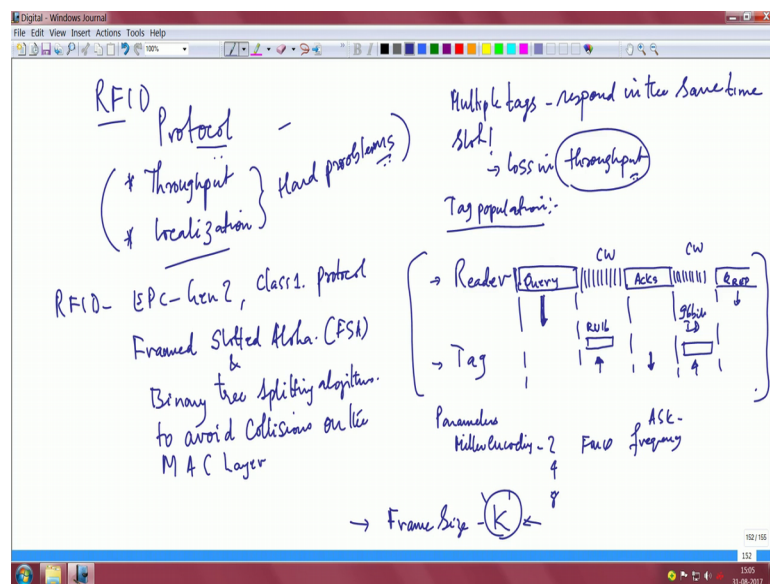 Digital - Windows Journal
File Edit View Insert Actions Tools Help
100%
RFID
Protocol -
* Throughput
* Localization
Hard problems
RFID - EPC-Gen2, Class1. Protocol
Framed Slotted Aloha. (FSA)
&
Binary tree splitting algorithms.
to avoid Collisions on the
MAC Layer
Multiple tags - respond in the same time
slot!
→ loss in throughput
Tag population:-
CW CW
→ Reader Query Acks QREP
RN16 96bit
ID
→ Tag
Parameters ASK-
Miller Encoding - 2 FM0 frequency
4
8
→ Frame Size - K ←
152/155
152
15:05
31-08-2017